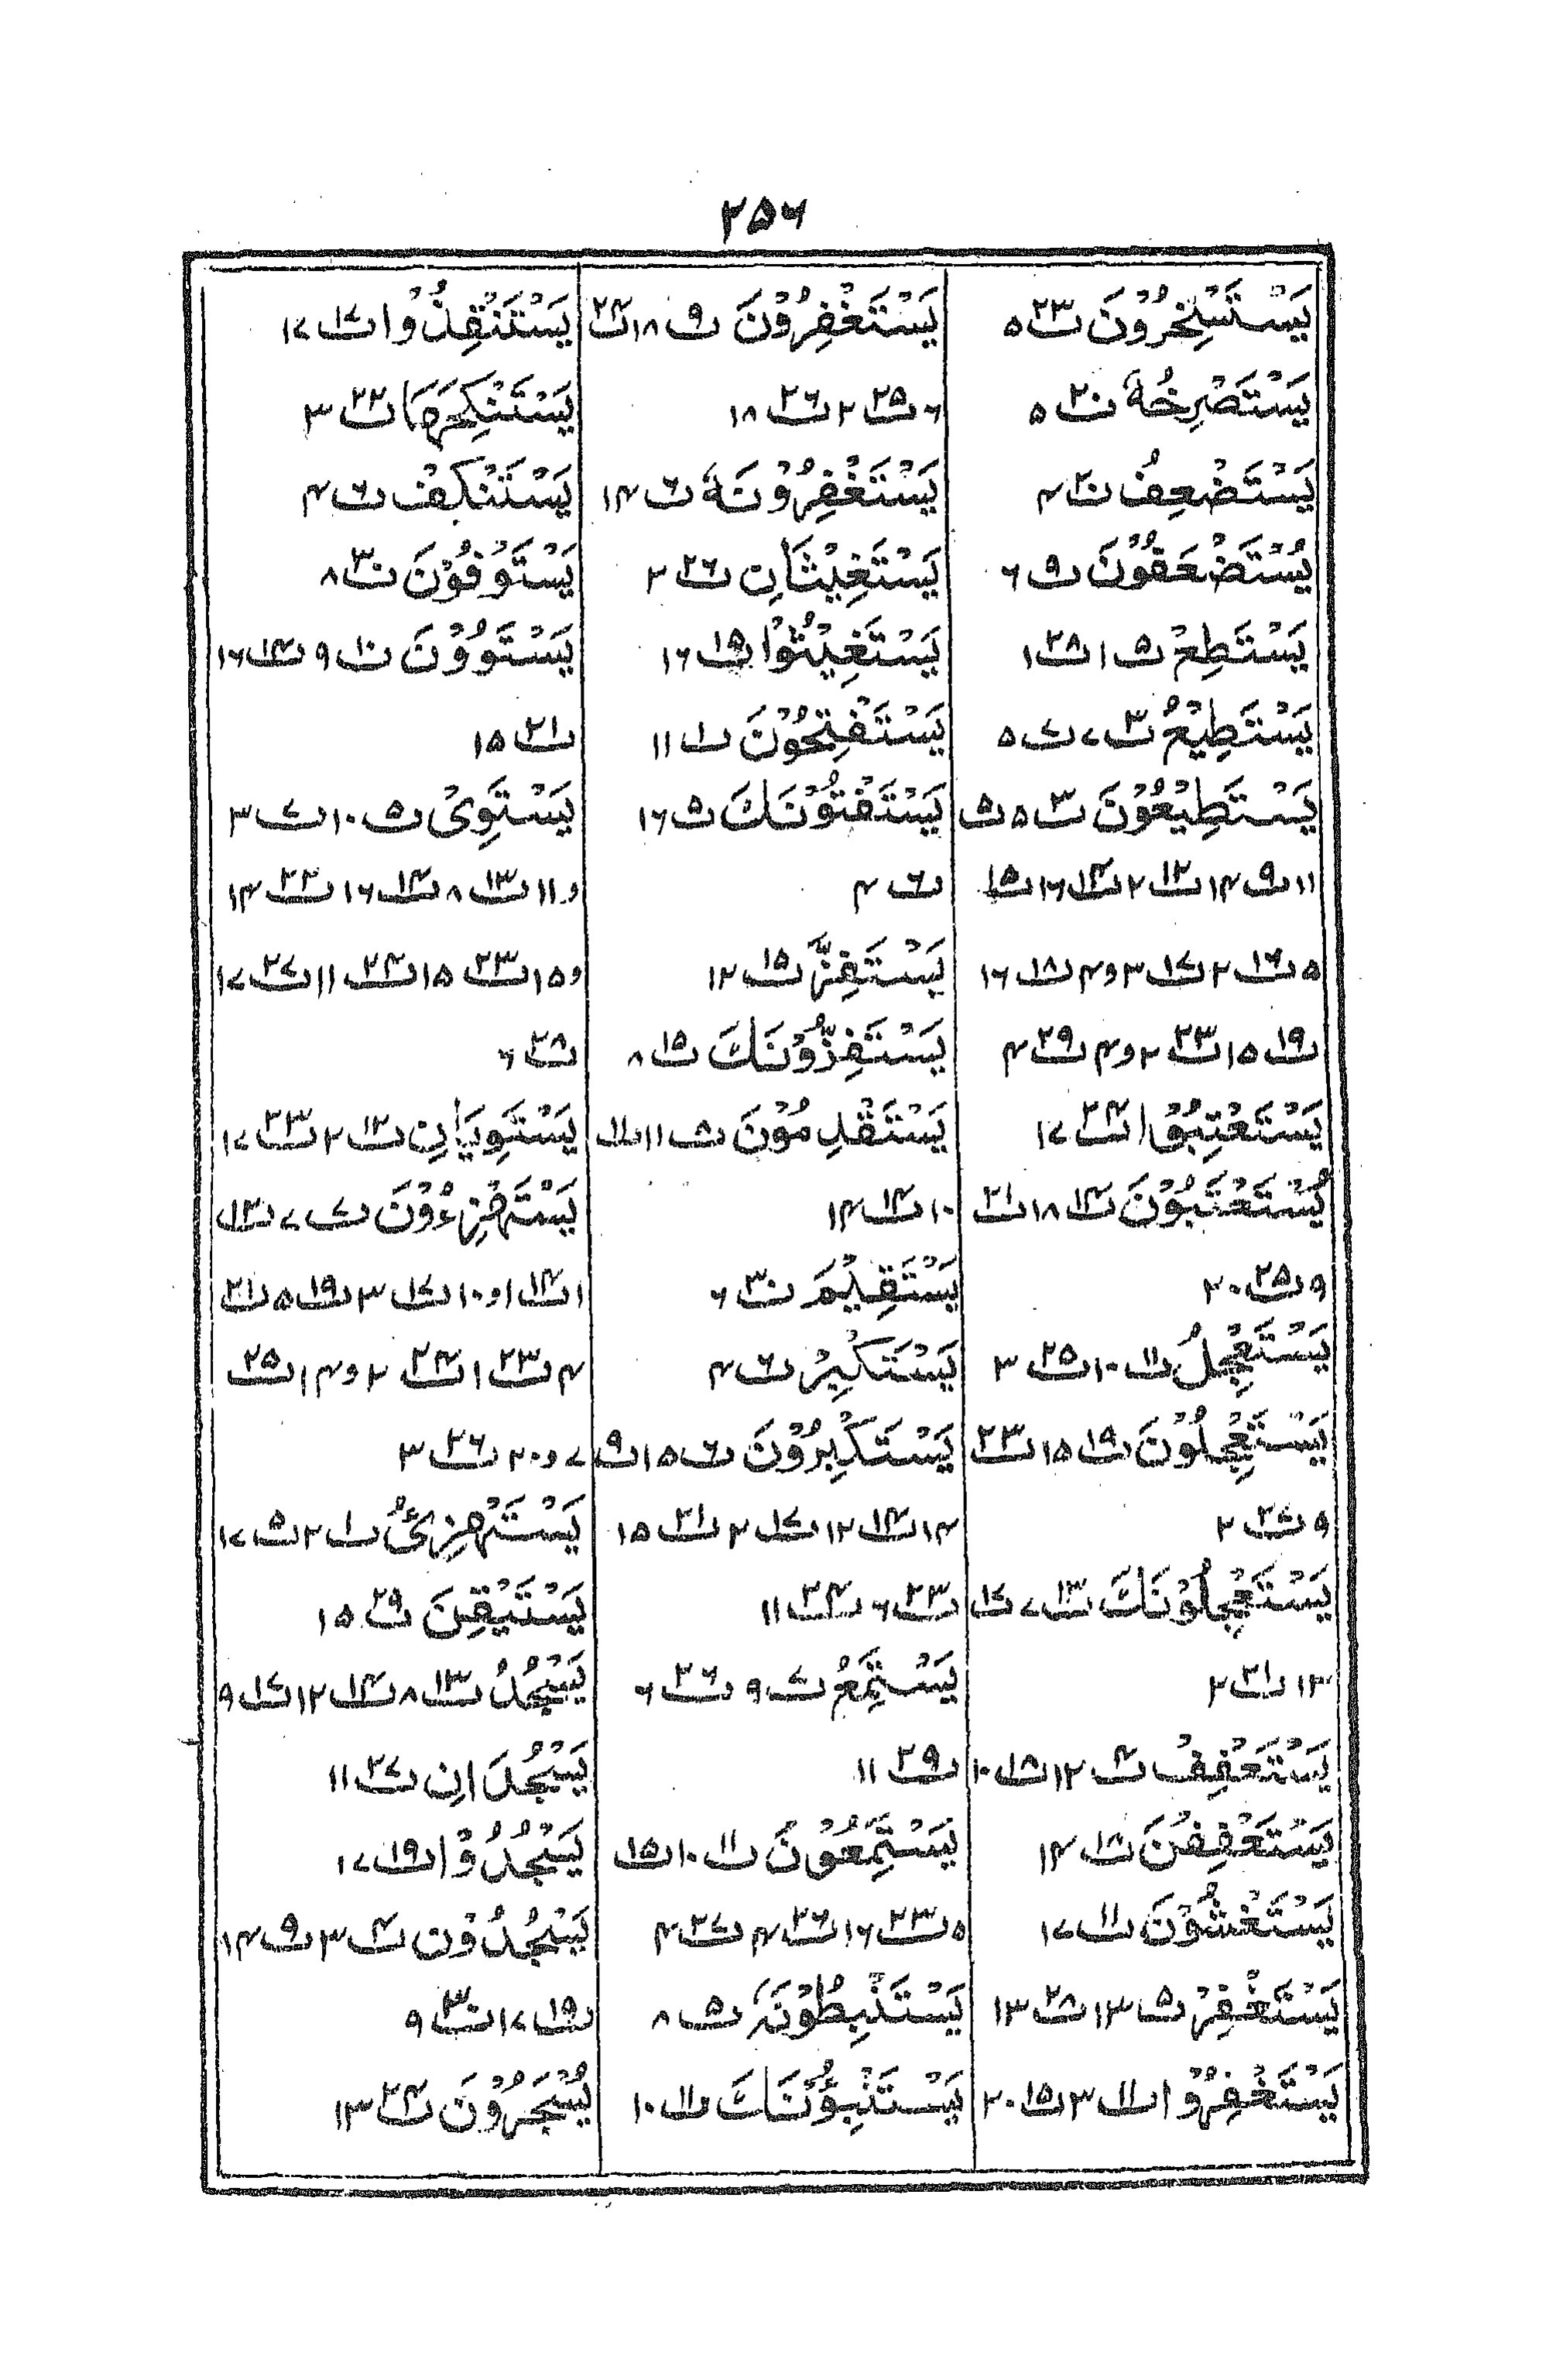 ۲۵۶
يَسْتَسْخِرُوْنَ پ۲۳ ۵
يَسْتَصْرِخُهٗ پ۲۰ ۵
يَسْتَضْعِفُ پ۲۰ ۴
يُسْتَضْعَفُوْنَ پ۹ ۶
يَسْتَطِعْ پ۵ ۱ پ۲۸ ۱
يَسْتَطِيْعُ پ۳ ۷ پ۷ ۵
يَسْتَطِيْعُوْنَ پ۳ ۵ پ۵
۱۱ پ۹ ۱۴ پ۱۲ ۲ پ۱۴ ۱۶ پ۱۵
۵ پ۱۶ ۲ پ۱۷ ۳ و ۴ پ۱۸ ۱۶
پ۱۹ ۱۵ پ۲۳ ۲ و ۴ پ۲۹ ۴
يَسْتَعْتِبُوْا پ۲۴ ۱۷
يُسْتَعْتَبُوْنَ پ۱۴ ۱۸ پ۲۱
۹ پ۲۵ ۲۰
يَسْتَعْجِلُ پ۱۱ ۱۰ پ۲۵ ۳
يَسْتَعْجِلُوْنَ پ۱۹ ۱۵ پ۲۳
۹ پ۲۷ ۲
يَسْتَعْجِلُوْنَكَ پ۱۳ ۷ پ۱۷
۱۳ پ۲۱ ۲
يَسْتَعْفِفْ پ۴ ۱۲ پ۱۸ ۱۰
يَسْتَعْفِفْنَ پ۱۸ ۱۴
يَسْتَغْشُوْنَ پ۱۱ ۱۷
يَسْتَغْفِرْ پ۵ ۱۳ پ۲۸ ۱۳
يَسْتَغْفِرُوْا پ۱۱ ۳ پ۱۵ ۲۰
يَسْتَغْفِرُوْنَ پ۹ ۱۸ پ۲۴
۶ پ۲۵ ۲ پ۲۶ ۱۸
يَسْتَغْفِرُوْنَهٗ پ۶ ۱۴
يَسْتَغِيْثَانِ پ۲۶ ۲
يَسْتَغِيْثُوْا پ۱۵ ۱۶
يَسْتَفْتِحُوْنَ پ۱ ۱۱
يَسْتَفْتُوْنَكَ پ۵ ۱۶
پ۶ ۴
يَسْتَفِزَّ پ۱۵ ۱۲
يَسْتَفِزُّوْنَكَ پ۱۵ ۸
يَسْتَقْدِمُوْنَ پ۸ ۱۱ پ۱۱
۱۰ پ۱۴ ۱۴
يَسْتَقِيْمَ پ۳۰ ۶
يَسْتَكْبِرْ پ۶ ۴
يَسْتَكْبِرُوْنَ پ۶ ۱۵ پ۹
۱۴ پ۱۴ ۱۲ پ۱۷ ۲ پ۲۱ ۱۵
پ۲۳ ۶ پ۲۴ ۱۱
يَسْتَمِعُ پ۷ ۹ پ۲۶ ۶
پ۲۹ ۱۱
يَسْتَمِعُوْنَ پ۱۱ ۱۰ پ۱۵
۵ پ۲۳ ۱۶ پ۲۶ ۴ پ۲۷ ۴
يَسْتَنْبِطُوْنَهٗ پ۵ ۸
يَسْتَنْبِؤُنَكَ پ۱۱ ۱۰
يَسْتَنْقِذُوْا پ۱۷ ۱۷
يَسْتَنْكِحَهَا پ۲۲ ۳
يَسْتَنْكِفْ پ۶ ۴
يَسْتَوْفُوْنَ پ۳۰ ۸
يَسْتَوٗوْنَ پ۱۰ ۹ پ۱۴ ۱۶
پ۲۱ ۱۵
يَسْتَوِیْ پ۵ ۱۰ پ۷ ۳
و ۱۱ پ۱۳ ۸ پ۱۴ ۱۶ پ۲۲ ۱۴
و ۱۵ پ۲۳ ۱۵ پ۲۴ ۱۱ پ۲۷ ۱۷
پ۲۸ ۶
يَسْتَوِيٰنِ پ۱۲ ۲ پ۲۳ ۱۷
يَسْتَهْزِءُوْنَ پ۷ ۷ پ۱۳
۱ پ۱۴ ۱ و ۱۰ پ۱۷ ۳ پ۱۹ ۵ پ۲۱
۴ پ۲۳ ۱ پ۲۴ ۲ و ۱۴ پ۲۵
۷ و ۲۰ پ۲۶ ۳
يَسْتَهْزِئُ پ۱ ۲ پ۵ ۱۷
يَسْتَيْقِنَ پ۲۹ ۱۵
يَسْجُدُ پ۱۳ ۸ پ۱۴ ۱۲ پ۱۷ ۹
يَسْجُدَانِ پ۲۷ ۱۱
يَسْجُدُوْا پ۱۹ ۱۷
يَسْجُدُوْنَ پ۴ ۳ پ۹ ۱۴
پ۱۹ ۱۷ پ۳۰ ۹
يُسْجَرُوْنَ پ۲۴ ۱۳